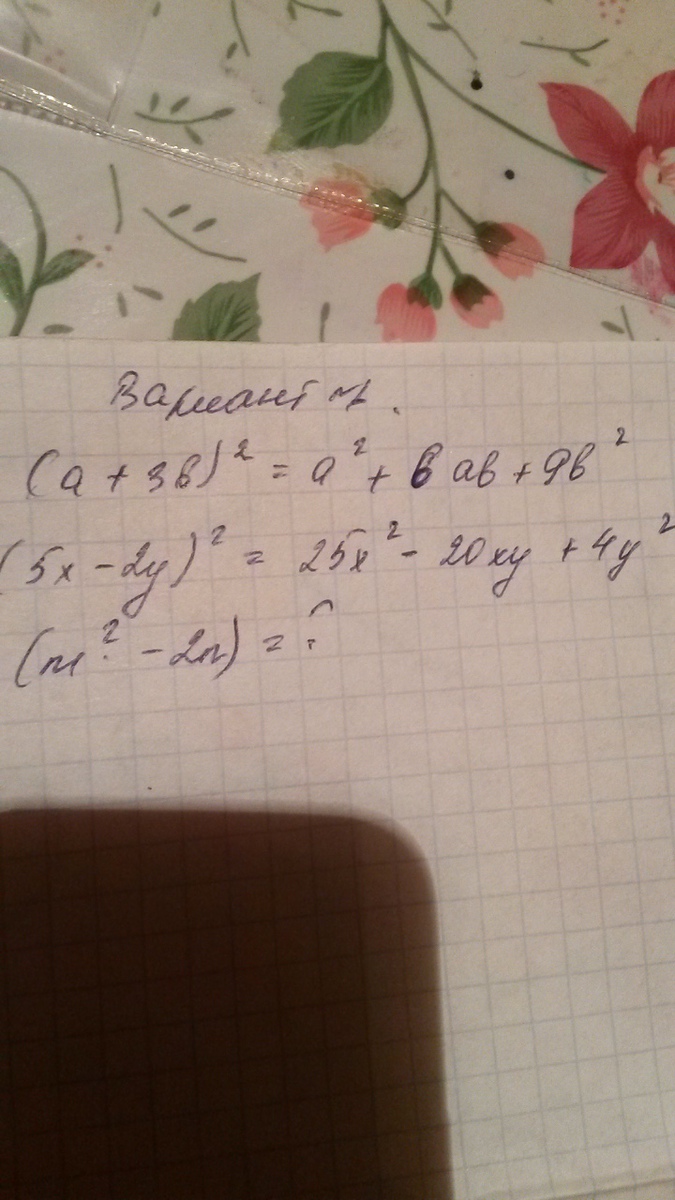 Вариант 1.
(a + 3b)² = a² + 6ab + 9b²
(5x - 2y)² = 25x² - 20xy + 4y²
(m² - 2n) = ?